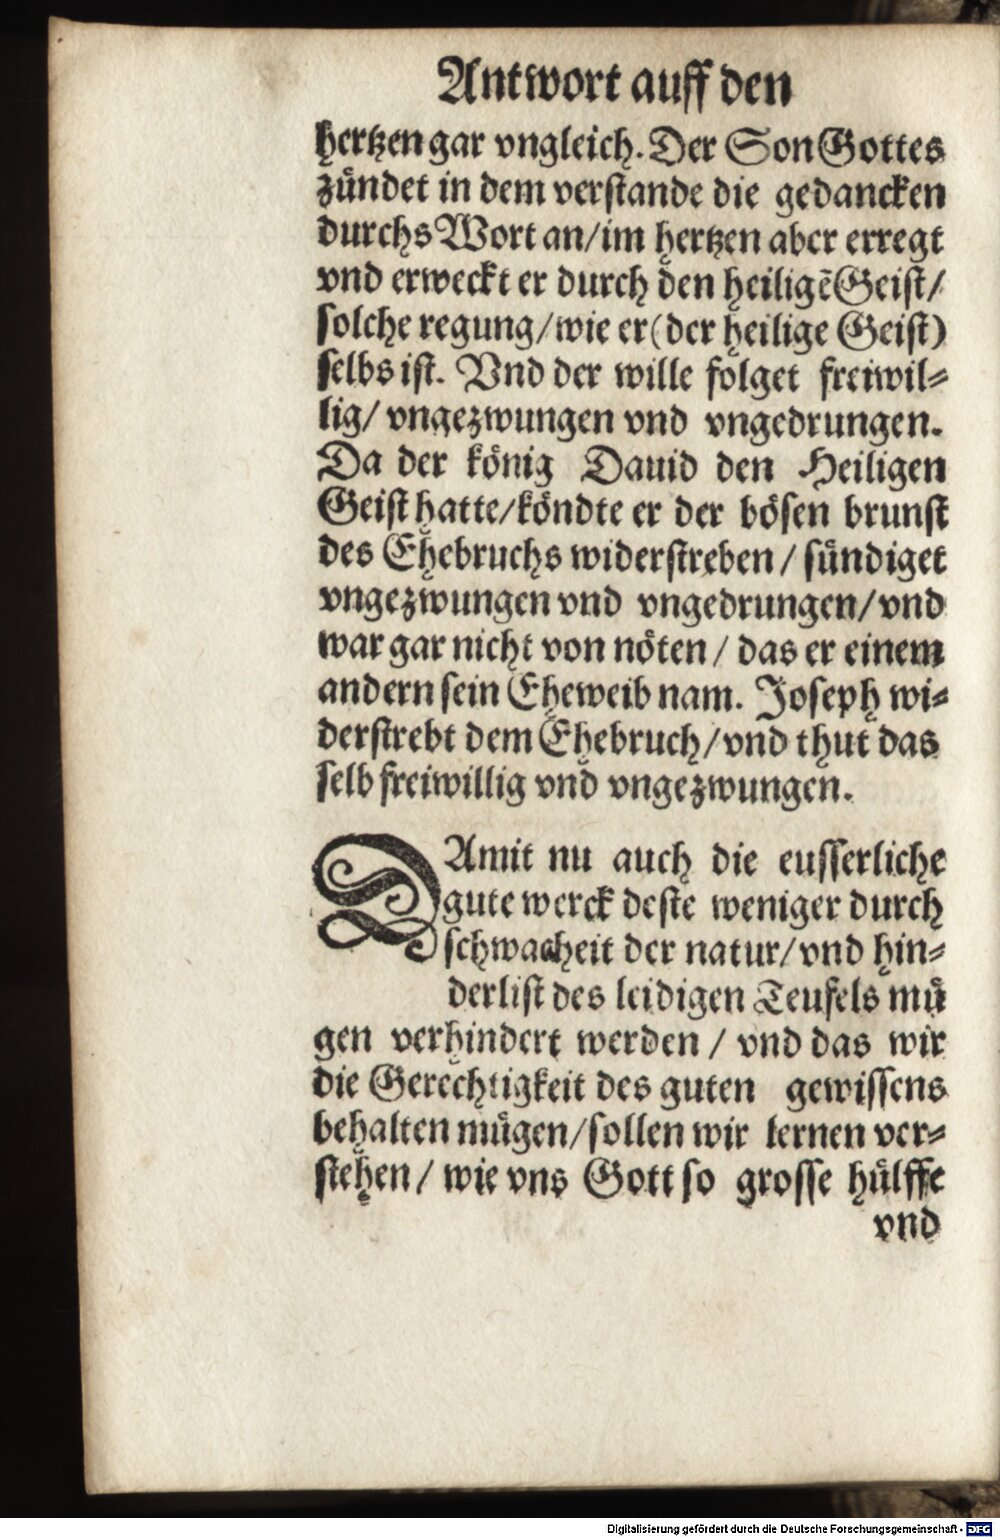 Antwort auff den
hertzen gar vngleich. Der Son Gottes
zündet in dem verstande die gedancken
durchs Wort an/im hertzen aber erregt
vnd erweckt er durch den heiligẽ Geist/
solche regung/wie er (der heilige Geist)
selbs ist. Vnd der wille folget freiwil⸗
lig/ vngezwungen vnd vngedrungen.
Da der könig Dauid den Heiligen
Geist hatte/köndte er der bösen brunst
des Ehebruchs widerstreben/ sündiget
vngezwungen vnd vngedrungen/vnd
war gar nicht von nöten/ das er einem
andern sein Eheweib nam. Joseph wi⸗
derstrebt dem Ehebruch/vnd thut das
selb freiwillig vnd vngezwungen.
DAmit nu auch die eusserliche
gute werck deste weniger durch
schwacheit der natur/vnd hin⸗
derlist des leidigen Teufels mü
gen verhindert werden/ vnd das wir
die Gerechtigkeit des guten gewissens
behalten mügen/sollen wir lernen ver⸗
stehen/ wie vns Gott so grosse hülffe
vnd
Digitalisierung gefördert durch die Deutsche Forschungsgemeinschaft - DFG